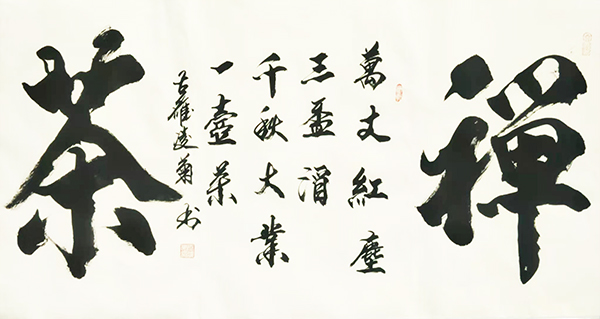 禪
萬丈紅塵
三盃酒
千秋大業
一壺茶
菊书
茶